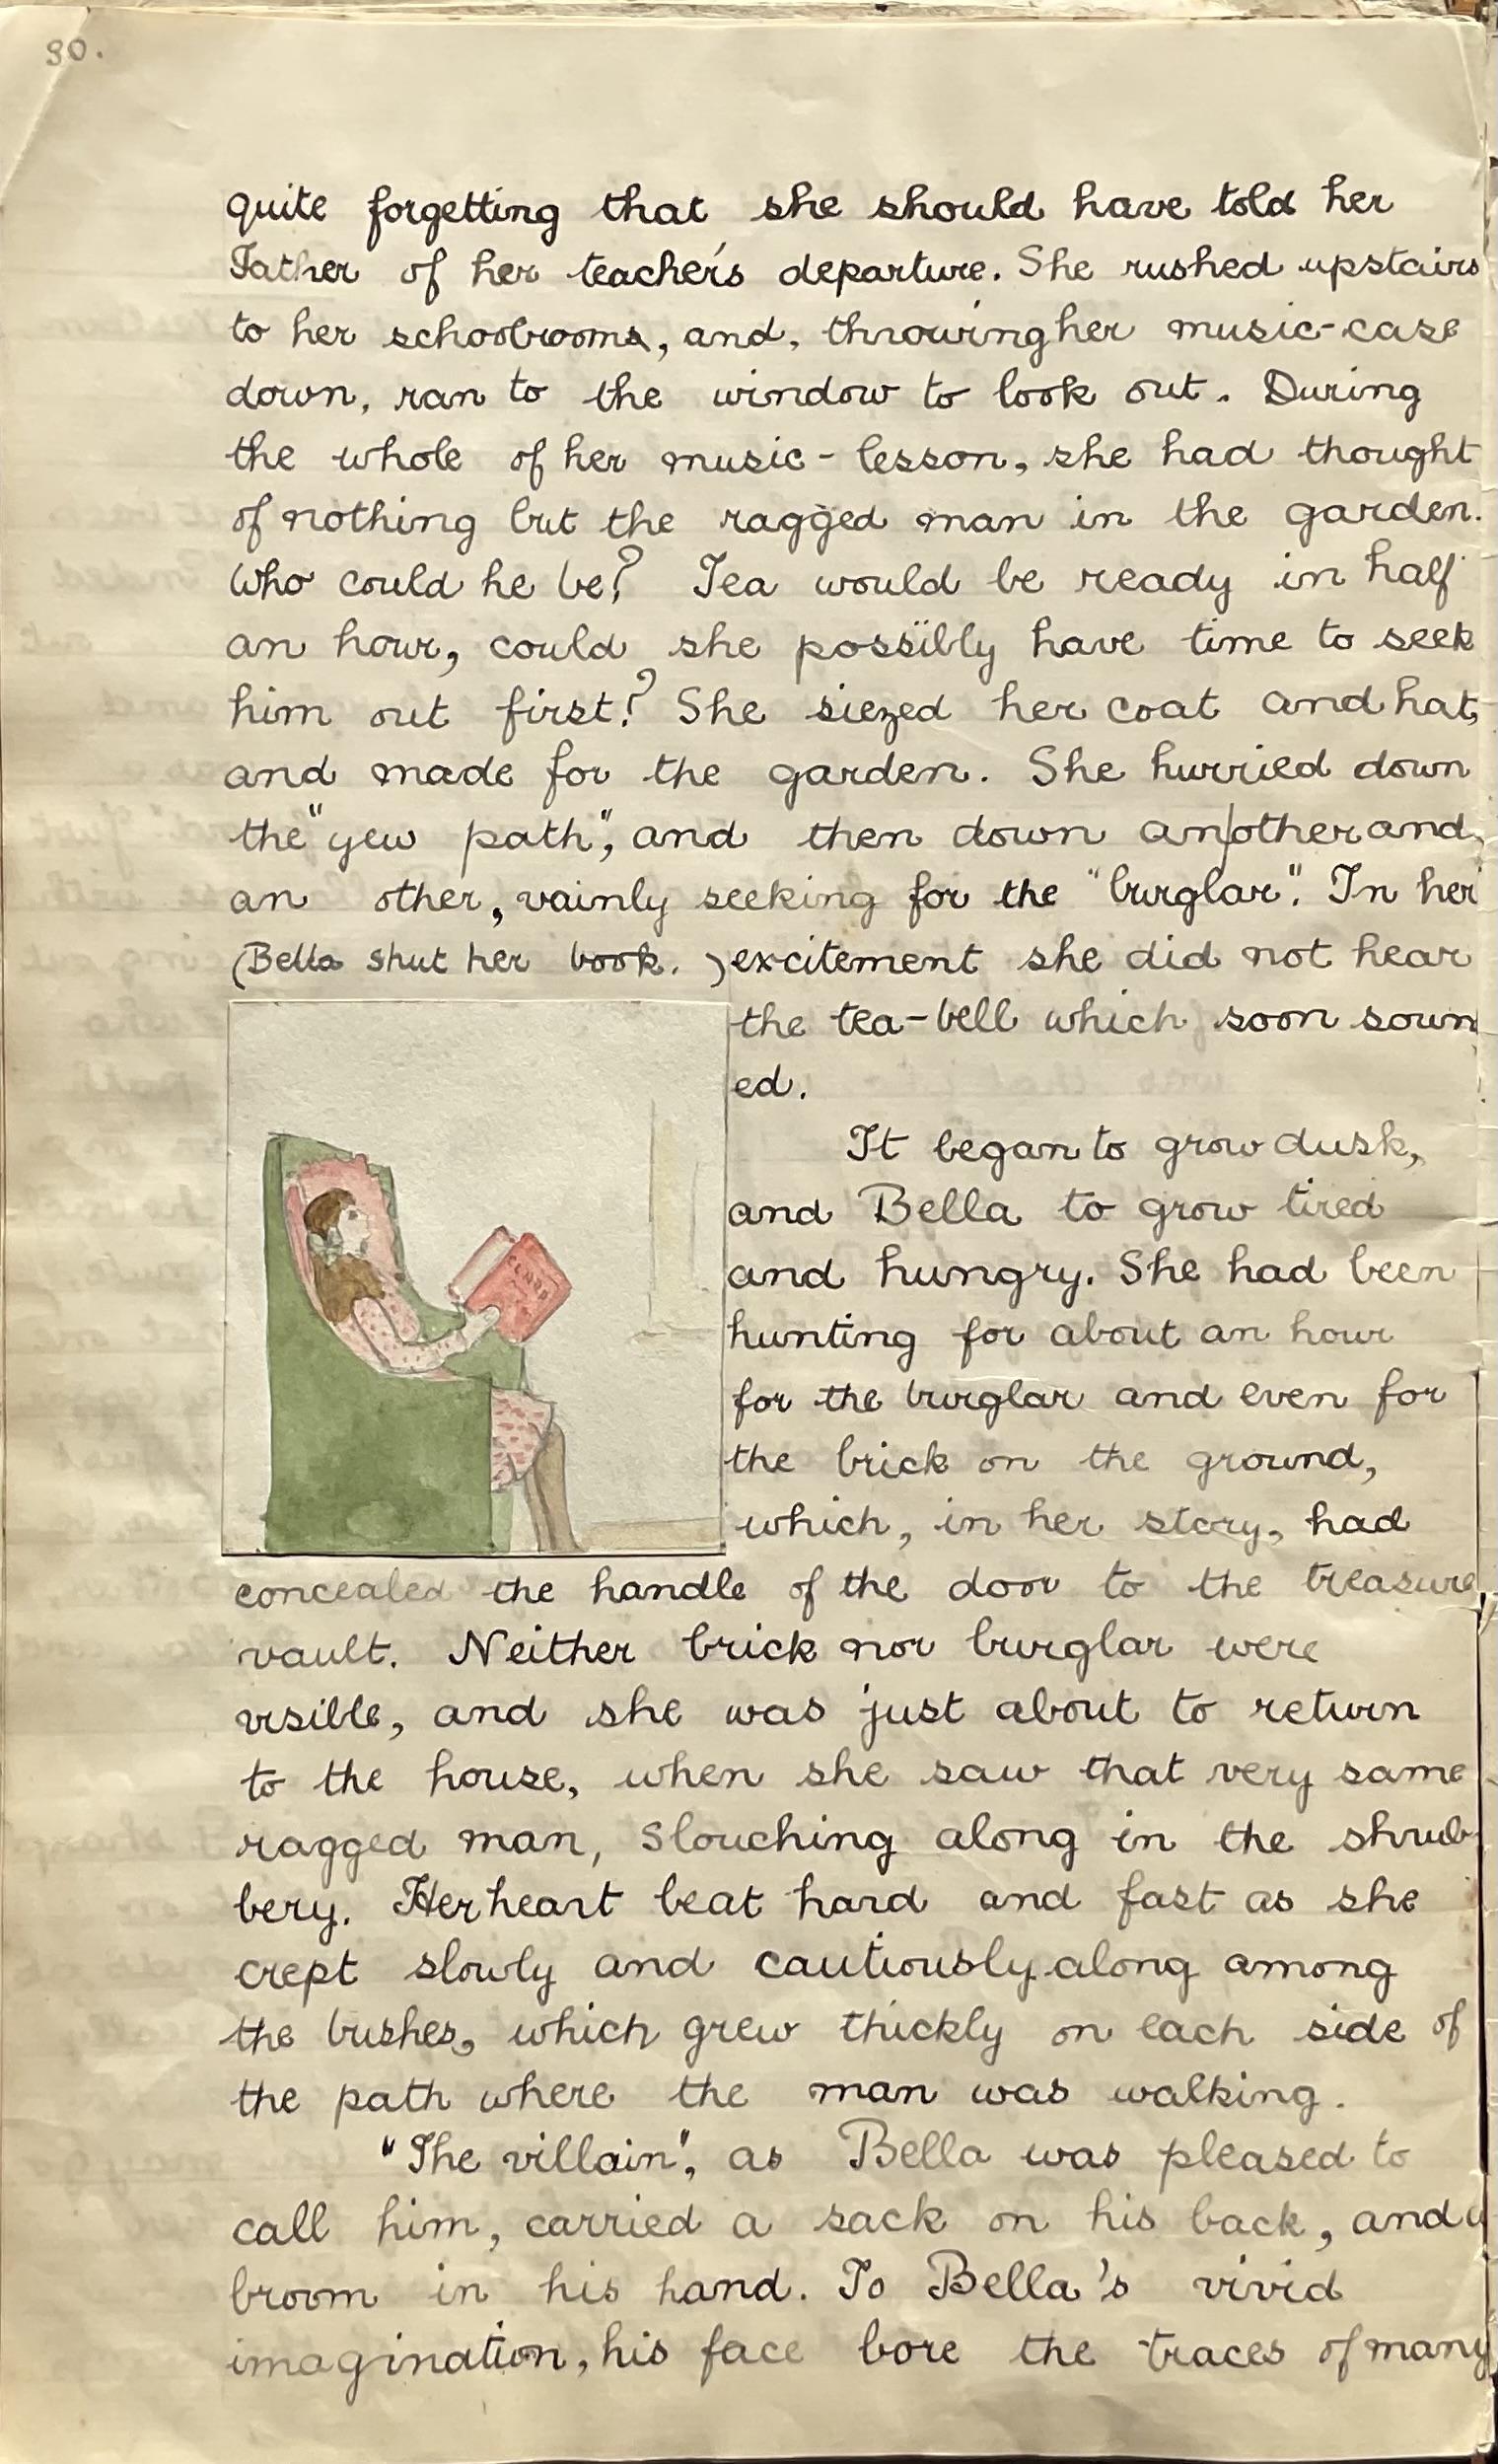 30.
quite forgetting that she should have told her
Father of her teacher's departure. She rushed upstairs
to her schoolroom, and, throwing her music-case
down, ran to the window to look out. During
the whole of her music-lesson, she had thought
of nothing but the ragged man in the garden.
Who could he be? Tea would be ready in half
an hour, could she possibly have time to seek
him out first? She siezed her coat and hat,
and made for the garden. She hurried down
the "yew path", and then down an other and
an other, vainly seeking for the "burglar". In her
(Bella shut her book.)
excitement she did not hear
the tea-bell which soon soun
ed.
It began to grow dusk,
and Bella to grow tired
and hungry. She had been
hunting for about an hour
for the burglar and even for
the brick on the ground,
which, in her story, had
concealed the handle of the door to the treasure
vault. Neither brick nor burglar were
visible, and she was just about to return
to the house, when she saw that very same
ragged man, slouching along in the shrub
bery. Her heart beat hard and fast as she
crept slowly and cautiously along among
the bushes, which grew thickly on each side of
the path where the man was walking.
"The villain", as Bella was pleased to
call him, carried a sack on his back, and a
broom in his hand. To Bella's vivid
imagination, his face bore the traces of many